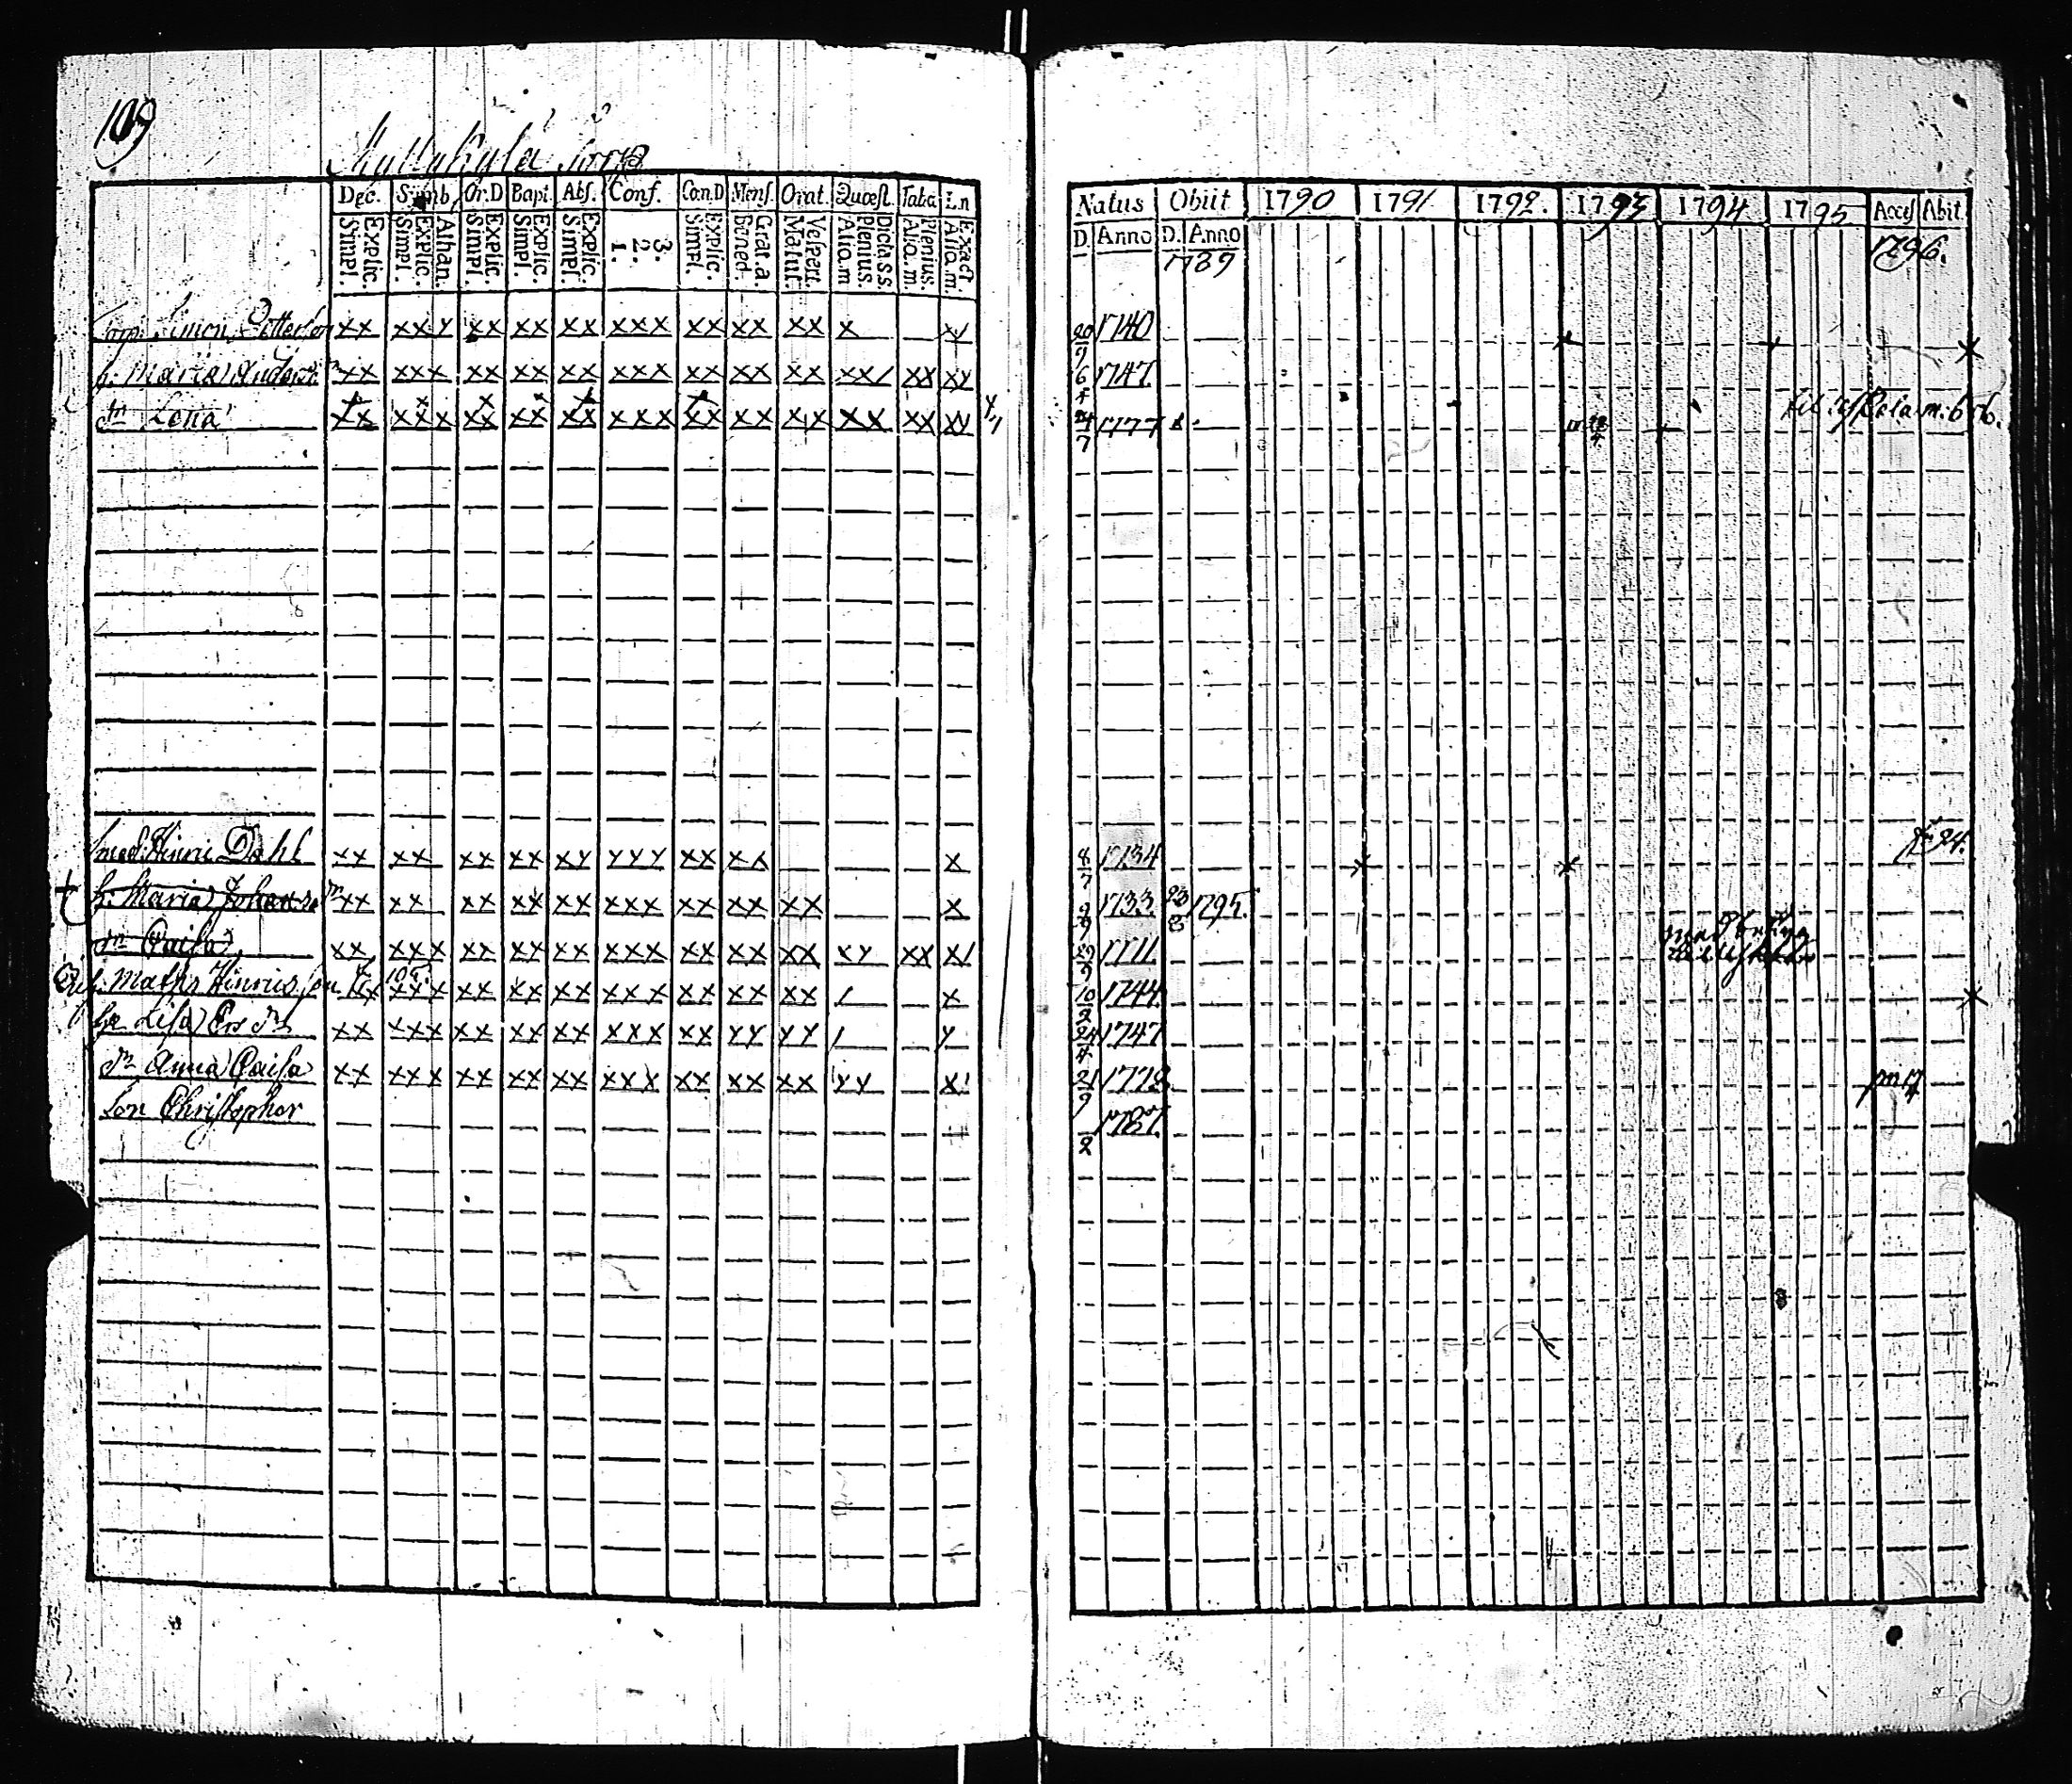 109
Myllykylä Torp
Dec. Simb. Or.D Bapt. Abs. Conf. Can.D Mens. Orat. Quæst. Taba L.n
Explic. Simpl. Athan. Explic. Simpl. Explic. Simpl. Explic. Simpl. Explic. Simpl. 3. 2. 1. Explic. Simpl. Grat. a. Bened. Vespert. Matut. Dict. a. s.s. Plenius. Alio. m Plenius. Alio. m. Exact. Alio. m.
Natus Obiit 1790 1791 1792. 1793 1794 1795 Acces Abit
D. Anno D. Anno
1789 1796.
Corp. Simon Petterson xx xxx xx xx xx xxx xx xx xx x 20/9 1740
h: Maria Anders xx xxx xx xx xx xxx xx xx xx xx xx 6/4 1747
dr Lena xx xxx xx xx xx xxx xx xx xx xx xx xx 24/7 1777
Smed. Hinric Dahl xx xx xx xx xx xxx xx xx x 8/7 1734
h: Maria Johans dr xx xx xx xx xx xxx xx xx xx x 1733 23/8 1795.
dr Caisa xx xxx xx xx xx xxx xx xx xx xx xx 29/9
Matts Hinricsson xxx xx xx xx xxx xx xx xx x 10/2 1744
h. Lisa Ers dr xx xxx xx xx xx xxx xx xx xx 24/4 1747
dr Anna Caisa xx xxx xx xx xx xxx xx xx xx xx x 21/9 1778
son Christopher 1787